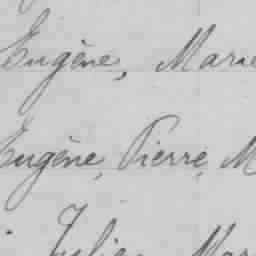 Eugène, Marie
Eugène, Pierre, M
Julien Mar